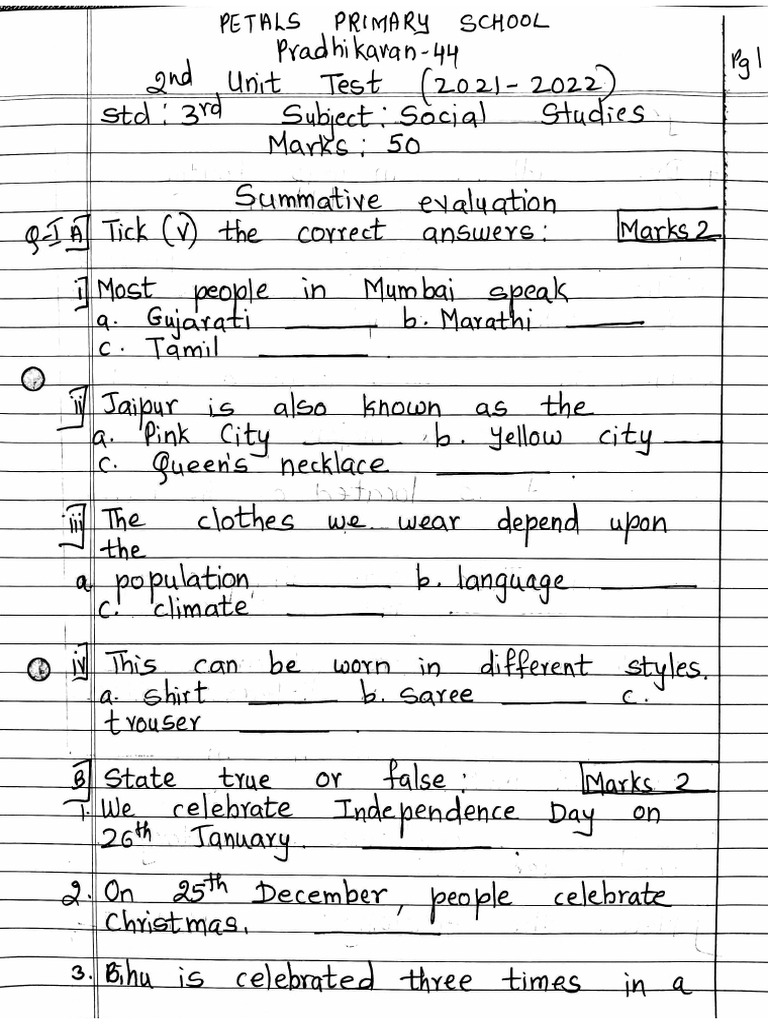 PETALS PRIMARY SCHOOL
Pradhikaran-44
Pg 1
2nd Unit Test (2021-2022)
Std: 3rd Subject: Social Studies
Marks: 50
Summative evaluation
Q-I A] Tick (√) the correct answers: Marks 2
i] Most people in Mumbai speak
a. Gujarati ______ b. Marathi ______
c. Tamil ______
ii] Jaipur is also known as the
a. Pink City ______ b. yellow city ______
c. Queen's necklace ______
iii] The clothes we wear depend upon
the
a population ______ b. language ______
c. climate ______
iv] This can be worn in different styles.
a. shirt ______ b. saree ______ c.
trouser ______
B] State true or false: Marks 2
1. We celebrate Independence Day on
26th January. ______
2. On 25th December, people celebrate
Christmas. ______
3. Bihu is celebrated three times in a